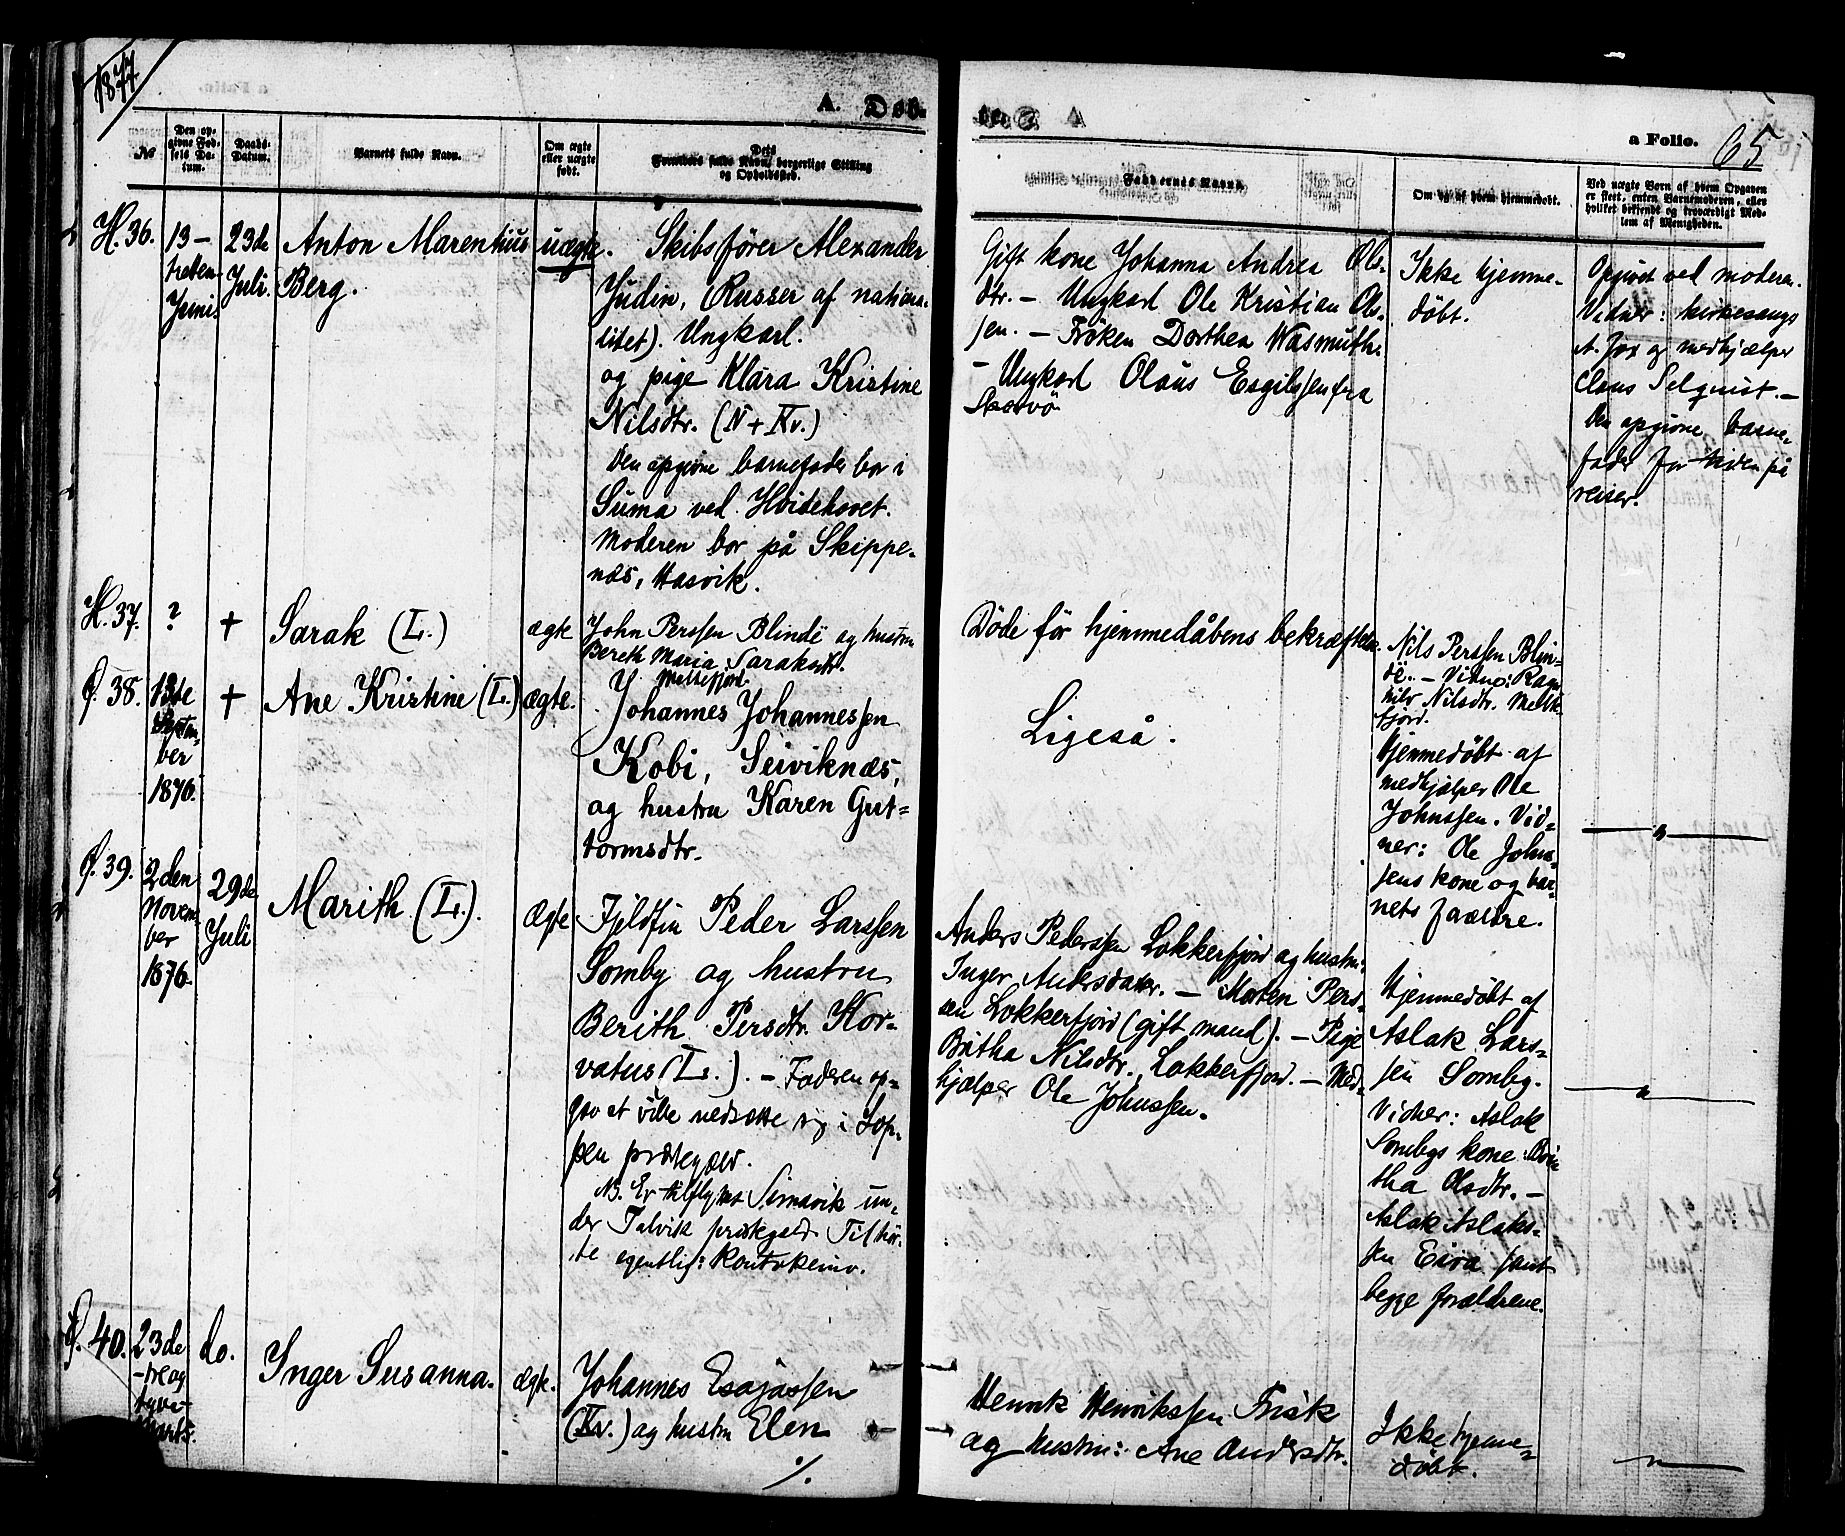 1877.
A. Døb-
te.
a Folio. 65
No
Den op-
givne Fød-
sels Da-
tum.
Daabs-
Datum.
Barnets fulde Navn.
Om ægte
eller uægte
født.
Dets
Forældres fulde Navn, borgerlige Stilling
og Opholdssted.
Faddernes Navne.
Om og af hvem hjemmedøbt.
Ved uægte Børn af hvem Opgaven
er skeet, enten Barnemoderen, eller
hvilket bekjendt og troværdigt Med-
lem af Menigheden.
H. 36.
13 –
tretten
Juni.
23de
Juli.
Anton Marentius
Berg.
uægte.
Skibsfører Alexander
Judin, (Russer af nationa-
litet). Ungkarl.
og pige Klara Kristine
Nilsdtr. (N + Kv.)
Den opgivne barnefader bor i
Suma ved Hvidehavet.
Moderen bor på Skippe-
næs, Hasvik.
Gift kone Johanna Andrea Ols-
dtr. – Ungkarl Ole Kristian Ols-
sen. – Frøken Dorthea Wasmuth.
– Ungkarl Olaus Esgilssen fra
Skorvø
Ikke hjemme-
døbt.
Opgivet ved moderen.
Vidner: kirkesanger
A. Fox og medhjælper
Claus Selquist. –
Den opgivne barne-
fader for tiden på
reiser.
H. 37.
?
+
Sarak (L.)
ægte
John Perssen Blindø og hustru
Bereth Maria Saraksdtr.
Meltefjord
Døde før hjemmedåbens bekræftelse.
Nils Perssen Blin-
dø. – Vidne: Rag-
nild Nilsdtr. Melk-
fjord.
Ø. 38.
13de
Septem-
ber
1876.
+
Ane Kristine (L.)
ægte.
Johannes Johannessen
Kobi, Seiviknæs,
og hustru Karen Gut-
tormsdtr.
Ligeså.
Hjemmedøbt af
medhjælper Ole
Johnssen. Vid-
ner: Ole Johns-
sens kone og bar-
nets forældre.
— " —
Ø. 39.
2den
Novem-
ber
1876.
29de
Juli
Marith (L.).
Ægte
Fjeldfin Peder Larssen
Somby og hustru
Berith Persdtr. Kor-
vatus (L.). – Faderen op-
gav at ville nedsætte sig i Lop-
pen præstegjæld.
NB. Er tilflyttet Simavik un-
der Talvik præstegjeld. Tilhør-
te egentlig: Koutokeino.
Anders Pederssen Lokkerfjord og hustru:
Inger Andersdatter. – Morten Pers-
sen Lokkerfjord (gift mand). – Pige
Britha Nilsdtr. Lokkerfjord. – Med-
hjælper Ole Johnssen.
Hjemmedøbt af
Aslak Lars-
sen Somby.
Vidner: Aslak
Sombys kone: Bri-
tha Olsdtr. –
Aslak Aslaks-
sen Eira samt
begge forældrene.
— " —
Ø. 40.
23de
– tre og
tyve –
Marts.
do.
Inger Susanna.
ægte.
Johannes Esajassen
(Kv.) og hustru Elen
./.
Henrik Henrikssen Frisk
og hustru: Ane Andersdtr.
Ikke hjemme-
døbt.
— " —